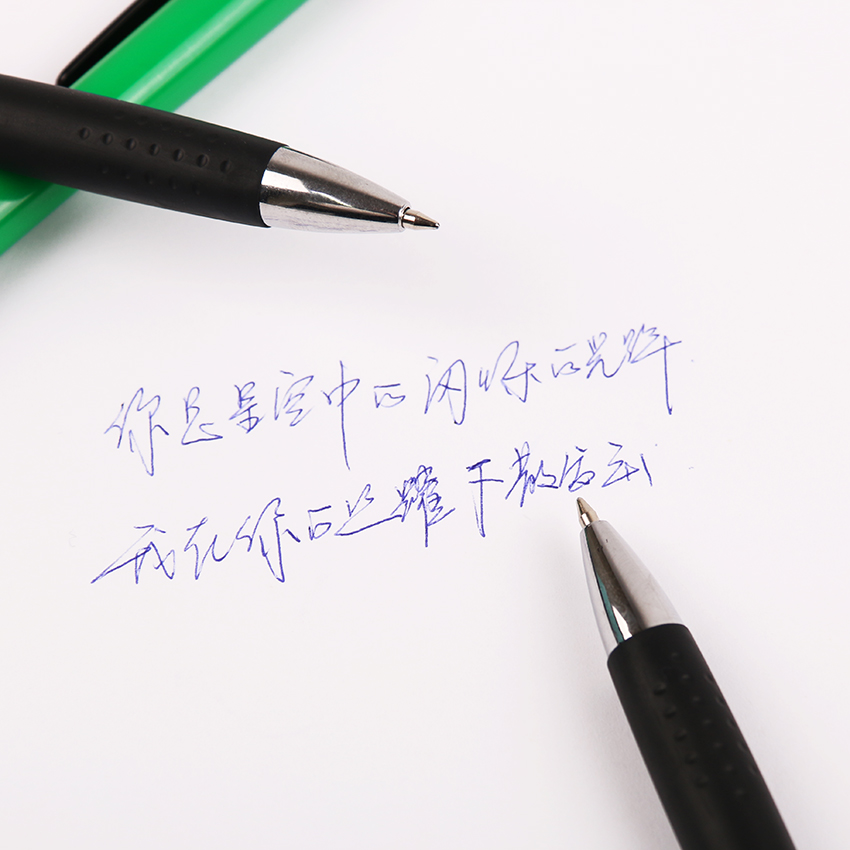 你总是空中的闪烁的光辉
我在你的耀下散